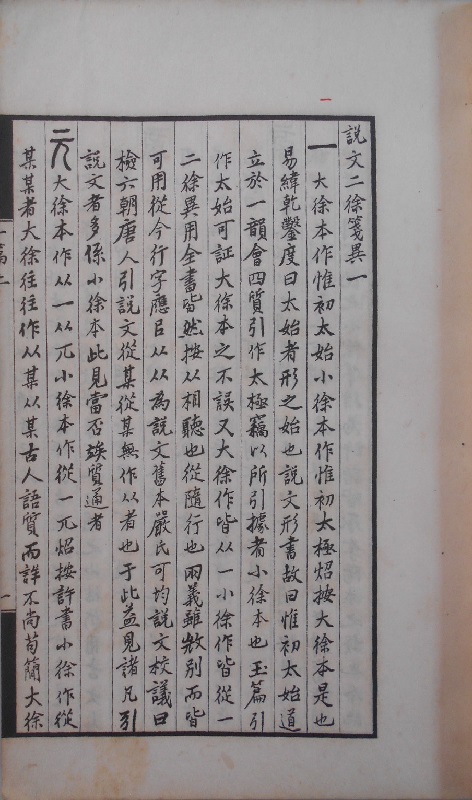 說文二徐箋異一
一 大徐本作惟初太始小徐本作惟初太極炤按大徐本是也
易緯乾鑿度曰太始者形之始也說文形書故曰惟初太始道
立於一韻會四質引作太極竊以所引據者小徐本也玉篇引
作太始可証大徐本之不誤又大徐作皆从一小徐作皆從一
二徐異用全書皆然按从相聽也從隨行也兩義雖㪚別而皆
可用從今行字應㠯从从為說文舊本嚴氏可均說文校議曰
檢六朝唐人引說文從某從某無作从者也于此益見諸凡引
說文者多係小徐本此見當否竢質通者
元 大徐本作从一从兀小徐本作從一兀炤按許書小徐作從
某某者大徐往往作从某从某古人語質而詳不尚苟簡大徐
一篇上
一